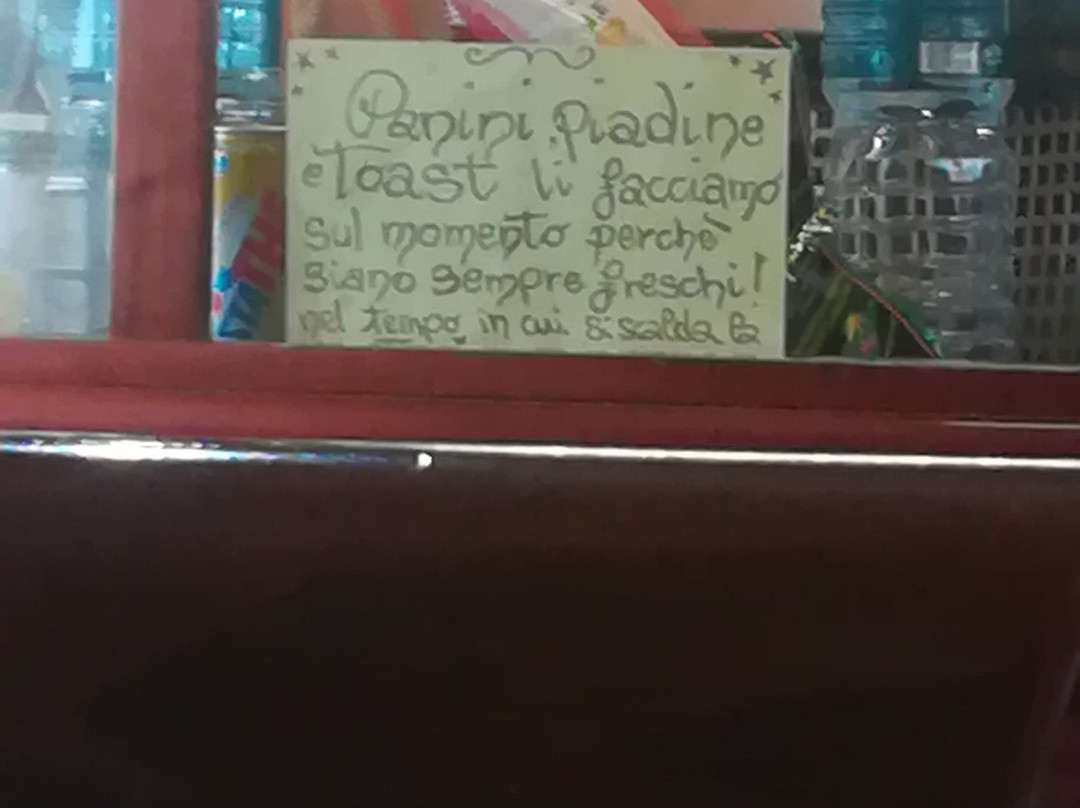 Panini, piadine
e Toast li facciamo
sul momento perchè
siano sempre freschi!
nel tempo in cui si scalda la